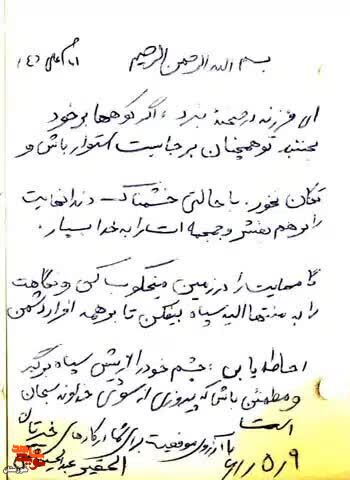 بسم الله الرحمن الرحیم
ای فرزند در صحنه نبرد، اگر کوهها برخود
بجنبند توهمچنان برجایت استوار باش و
تکان نخور. با حالتی خشمناک دندانهایت
را برهم بفشر و جمجمه ات را به خدا بسپار.
گامهایت را در زمین میخکوب کن و نگاهت
را به منتها الیه سپاه بیفکن تا بر همه افراد دشمن
احاطه یابی، چشم خود را از بیش سپاه برگیر
و مطمئن باش که پیروزی از سوی خداوند سبحان
است
با آرزوی موفقیت برای شما در کارهای خیرتان
الحقیر عبدالحسین
۶۱٫۵٫۹